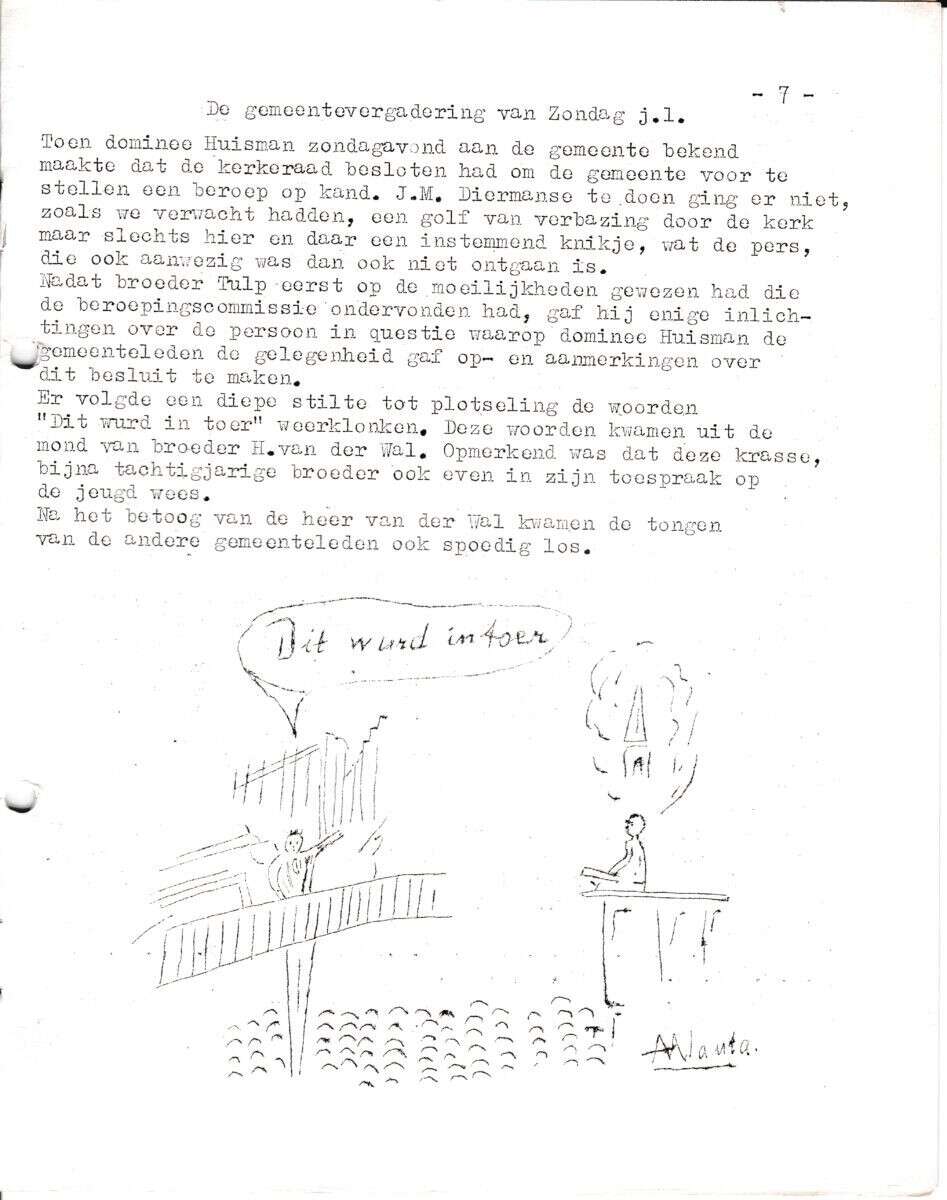 - 7 -
De gemeentevergadering van Zondag j.l.
Toen dominee Huisman zondagavond aan de gemeente bekend
maakte dat de kerkeraad besloten had om de gemeente voor te
stellen een beroep op kand. J.M. Diermanse te doen ging er niet,
zoals we verwacht hadden, een golf van verbazing door de kerk
maar slechts hier en daar een instemmend knikje, wat de pers,
die ook aanwezig was dan ook niet ontgaan is.
Nadat broeder Tulp eerst op de moeilijkheden gewezen had die
de beroepingscommissie ondervonden had, gaf hij enige inlich-
tingen over de persoon in questie waarop dominee Huisman de
gemeenteleden de gelegenheid gaf op- en aanmerkingen over
dit besluit te maken.
Er volgde een diepe stilte tot plotseling de woorden
"Dit wurd in toer" weerklonken. Deze woorden kwamen uit de
mond van broeder H.van der Wal. Opmerkend was dat deze krasse,
bijna tachtigjarige broeder ook even in zijn toespraak op
de jeugd wees.
Na het betoog van de heer van der Wal kwamen de tongen
van de andere gemeenteleden ook spoedig los.
Dit wurd in toer